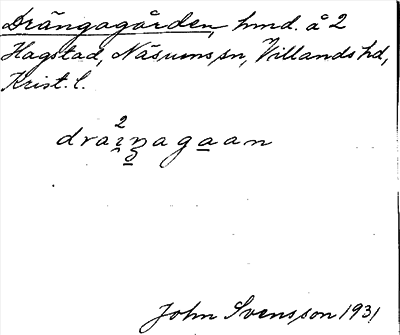 Drängagården, hmd. å 2
Hagstad, Näsums sn, Villands hd,
Krist. l.
2
draiŋagaan
John Svensson 1931